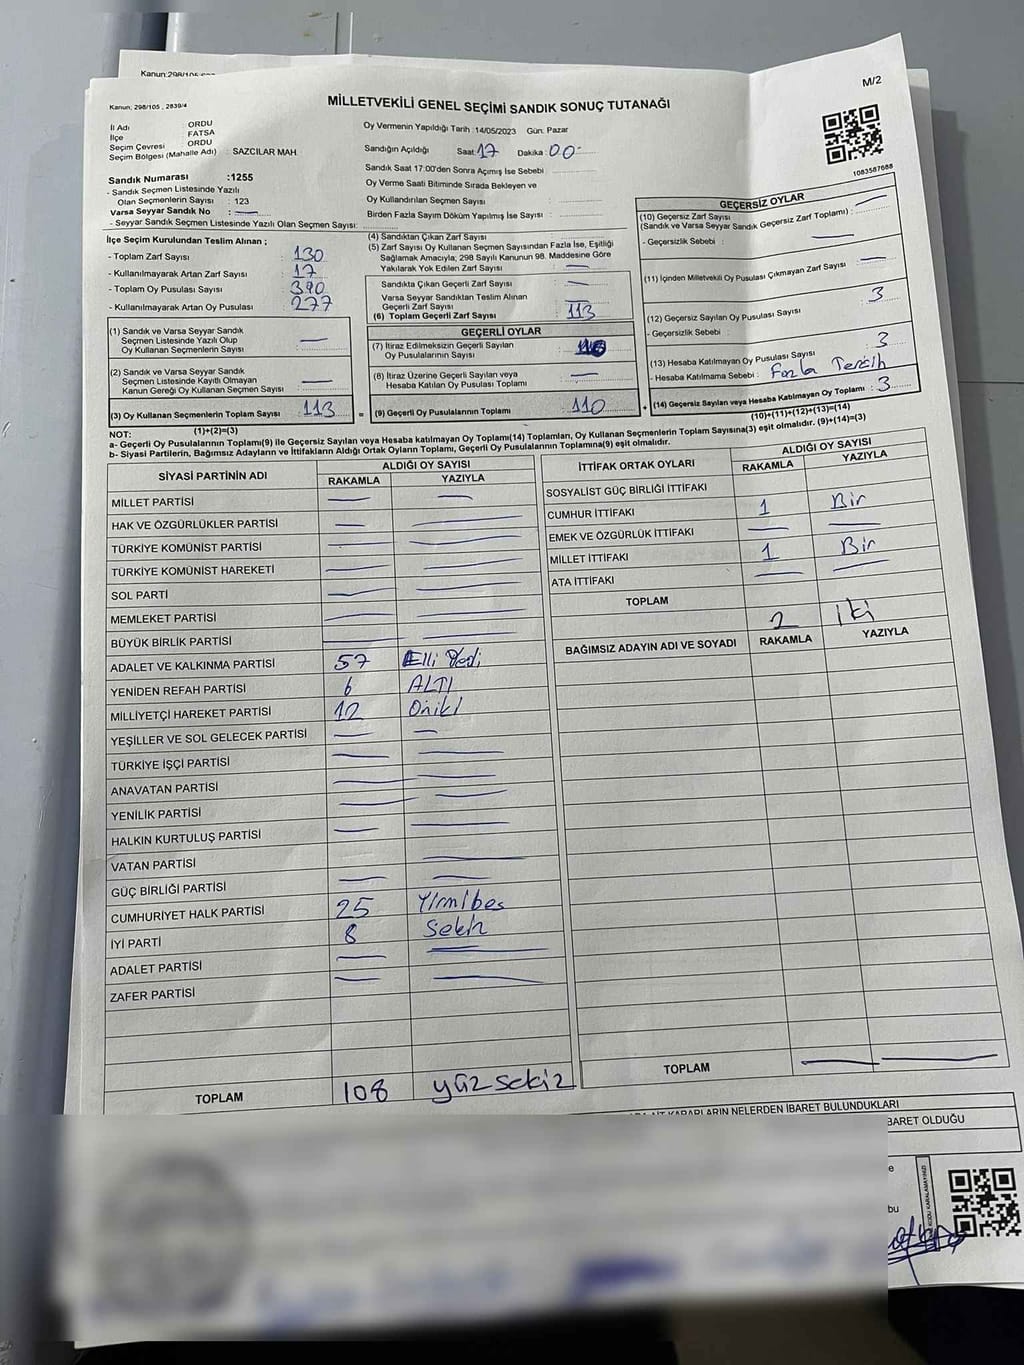 Kanun:298/105
M/2
Kanun: 298/105 , 2839/4
MİLLETVEKİLİ GENEL SEÇİMİ SANDIK SONUÇ TUTANAĞI
İl Adı ORDU
İlçe FATSA
Seçim Çevresi ORDU
Seçim Bölgesi (Mahalle Adı) : SAZCILAR MAH.
Sandık Numarası :1255
- Sandık Seçmen Listesinde Yazılı
Olan Seçmenlerin Sayısı : 123
Varsa Seyyar Sandık No :
- Seyyar Sandık Seçmen Listesinde Yazılı Olan Seçmen Sayısı:
Oy Vermenin Yapıldığı Tarih :14/05/2023 Gün: Pazar
Sandığın Açıldığı Saat: 17 Dakika: 00
Sandık Saat 17:00'den Sonra Açımış İse Sebebi :
Oy Verme Saati Bitiminde Sırada Bekleyen ve
Oy Kullandırılan Seçmen Sayısı :
Birden Fazla Sayım Döküm Yapılmış İse Sayısı :
1083587688
İlçe Seçim Kurulundan Teslim Alınan ;
- Toplam Zarf Sayısı : 130
- Kullanılmayarak Artan Zarf Sayısı : 17
- Toplam Oy Pusulası : 390
- Kullanılmayarak Artan Oy Pusulası : 277
(1) Sandık ve Varsa Seyyar Sandık
Seçmen Listesinde Yazılı Olup
Oy Kullanan Seçmenlerin Sayısı :
(2) Sandık ve Varsa Seyyar Sandık
Seçmen Listesinde Kayıtlı Olmayan
Kanun Gereği Oy Kullanan Seçmen Sayısı :
(3) Oy Kullanan Seçmenlerin Toplam Sayısı : 113
(1)+(2)=(3)
(4) Sandıktan Çıkan Zarf Sayısı
(5) Zarf Sayısı Oy Kullanan Seçmen Sayısından Fazla İse, Eşitliği
Sağlamak Amacıyla; 298 Sayılı Kanunun 98. Maddesine Göre
Yakılarak Yok Edilen Zarf Sayısı :
Sandıkta Çıkan Geçerli Zarf Sayısı :
Varsa Seyyar Sandıktan Teslim Alınan
Geçerli Zarf Sayısı :
(6) Toplam Geçerli Zarf Sayısı : 113
GEÇERLİ OYLAR
(7) İtiraz Edilmeksizin Geçerli Sayılan
Oy Pusulalarının Sayısı :
(8) İtiraz Üzerine Geçerli Sayılan veya
Hesaba Katılan Oy Pusulası Toplamı :
= (9) Geçerli Oy Pusulalarının Toplamı : 110
GEÇERSİZ OYLAR
(10) Geçersiz Zarf Sayısı
(Sandık ve Varsa Seyyar Sandık Geçersiz Zarf Toplamı) :
- Geçersizlik Sebebi :
(11) İçinden Milletvekili Oy Pusulası Çıkmayan Zarf Sayısı :
3
(12) Geçersiz Sayılan Oy Pusulası Sayısı
- Geçersizlik Sebebi :
(13) Hesaba Katılmayan Oy Pusulası Sayısı 3
- Hesaba Katılmama Sebebi : Fazla Tercih
+ (14) Geçersiz Sayılan veya Hesaba Katılmayan Oy Toplamı : 3
(10)+(11)+(12)+(13)=(14)
NOT:
a- Geçerli Oy Pusulalarının Toplamı(9) ile Geçersiz Sayılan veya Hesaba katılmayan Oy Toplamı(14) Toplamları, Oy Kullanan Seçmenlerin Toplam Sayısına(3) eşit olmalıdır. (9)+(14)=(3)
b- Siyasi Partilerin, Bağımsız Adayların ve İttifakların Aldığı Ortak Oyların Toplamı, Geçerli Oy Pusulalarının Toplamına(9) eşit olmalıdır.
SİYASİ PARTİNİN ADI ALDIĞI OY SAYISI
RAKAMLA YAZIYLA
MİLLET PARTİSİ
HAK VE ÖZGÜRLÜKLER PARTİSİ
TÜRKİYE KOMÜNİST PARTİSİ
TÜRKİYE KOMÜNİST HAREKETİ
SOL PARTİ
MEMLEKET PARTİSİ
BÜYÜK BİRLİK PARTİSİ
ADALET VE KALKINMA PARTİSİ 57 Elli Yedi
YENİDEN REFAH PARTİSİ 6 ALTI
MİLLİYETÇİ HAREKET PARTİSİ 12 Oniki
YEŞİLLER VE SOL GELECEK PARTİSİ
TÜRKİYE İŞÇİ PARTİSİ
ANAVATAN PARTİSİ
YENİLİK PARTİSİ
HALKIN KURTULUŞ PARTİSİ
VATAN PARTİSİ
GÜÇ BİRLİĞİ PARTİSİ
CUMHURİYET HALK PARTİSİ 25 Yirmibes
İYİ PARTİ 8 Sekiz
ADALET PARTİSİ
ZAFER PARTİSİ
TOPLAM 108 yüz sekiz
İTTİFAK ORTAK OYLARI ALDIĞI OY SAYISI
RAKAMLA YAZIYLA
SOSYALİST GÜÇ BİRLİĞİ İTTİFAKI
CUMHUR İTTİFAKI 1 Bir
EMEK VE ÖZGÜRLÜK İTTİFAKI
MİLLET İTTİFAKI 1 Bir
ATA İTTİFAKI
TOPLAM 2 iki
BAĞIMSIZ ADAYIN ADI VE SOYADI RAKAMLA YAZIYLA
TOPLAM
KARARLARIN NELERDEN İBARET BULUNDUKLARI
İBARET OLDUĞU